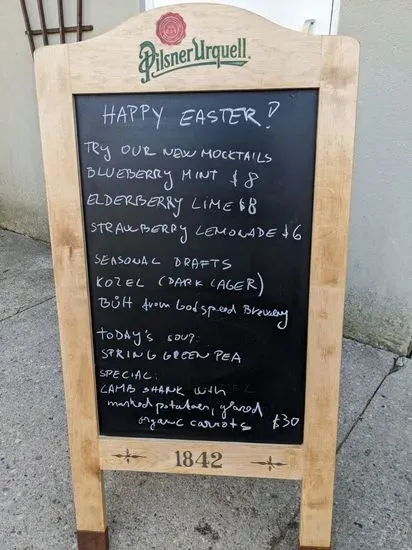 Pilsner Urquell
HAPPY EASTER!
TRY OUR NEW MOCKTAILS
BLUEBERRY MINT $8
ELDERBERRY LIME $8
STRAWBERRY LEMONADE $6
SEASONAL DRAFTS
KOZEL (DARK LAGER)
BŮH from Godspeed Brewery
TODAY'S SOUP:
SPRING GREEN PEA
SPECIAL:
LAMB SHANK with
mashed potatoes, glazed
organic carrots $30
1842